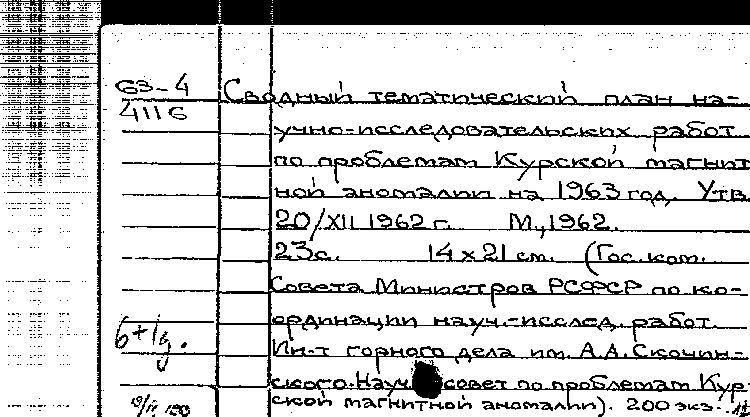 63-4
4116
Сводный тематический план на-
учно-исследовательских работ
по проблемам Курской магнит
ной аномалии на 1963 год. Утв.
20/XII 1962 г. М., 1962.
23 с. 14 х 21 см. (Гос. ком.
Совета Министров РСФСР по ко-
ординации науч.-исслед. работ.
6+1д.
Ин-т горного дела им. А.А. Скочин-
ского. Науч совет по проблемам Кур-
ской магнитной аномалии). 200 экз.